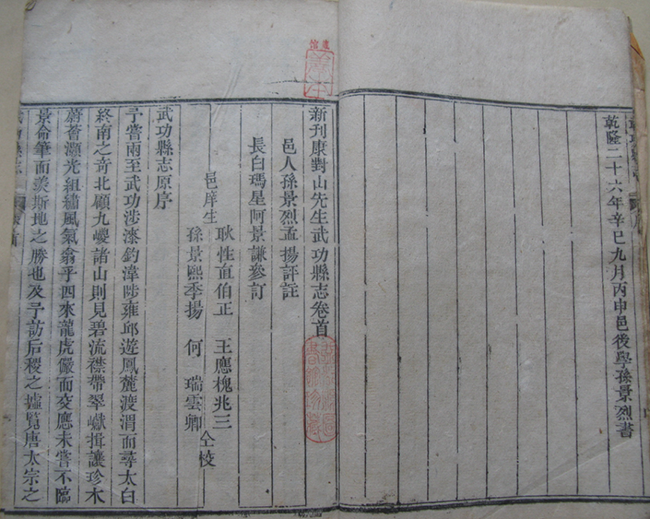 乾隆二十六年辛巳九月丙申邑後學孫景烈書
新刊康對山先生武功縣志卷首
邑人孫景烈孟揚評註
長白瑪星阿景謙參訂
邑庠生
耿性直伯正 王應槐兆三
孫景熙季揚 何 瑞雲卿
仝校
武功縣志原序
予嘗兩至武功涉漆釣漳陟雍邱遊鳳麓渡渭而尋太白
終南之奇北顧九嵕諸山則見碧流襟帶翠巘揖讓珍木
蔚薈灝光組繡風氣翕乎四來龍虎儼而交應未嘗不臨
景命筆面羨斯地之勝也及予訪后稷之墟覧唐太宗之